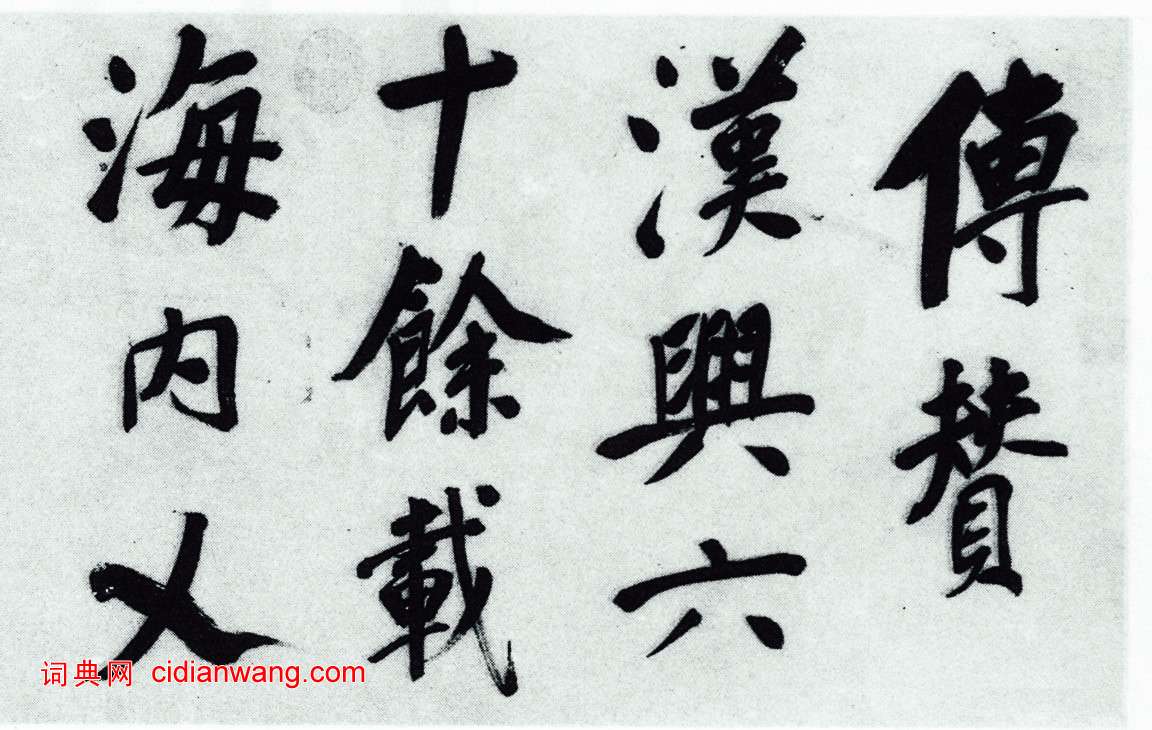 傳賛
漢興六
十餘載
海内乂
词典网 cidianwang.com